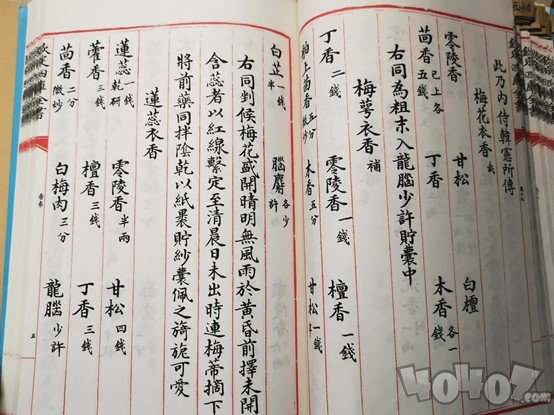 欽定四庫全書
此乃内侍韓憲所傳
梅花衣香 武
零陵香 甘松 白檀
茴香 已上各五錢 丁香 木香 各一錢
右同為粗末入龍腦少許貯囊中
梅萼衣香 補
丁香 二錢 零陵香 一錢 檀香 一錢
舶上茴香 五分微炒 木香 五分 甘松 一錢半
白芷 一錢半 腦麝 各少許
右同剉候梅花盛開晴明無風雨於黄昏前擇未開
含蕊者以紅線繫定至清晨日未出時連梅蒂摘下
將前藥同拌陰乾以紙裹貯紗囊佩之旖旎可愛
蓮蕊衣香
蓮蕊 一錢乾研 零陵香 半兩 甘松 四錢
藿香 三錢 檀香 三錢 丁香 三錢
茴香 二分微炒 白梅肉 三分 龍腦 少許
欽定四庫全書
香乘
五